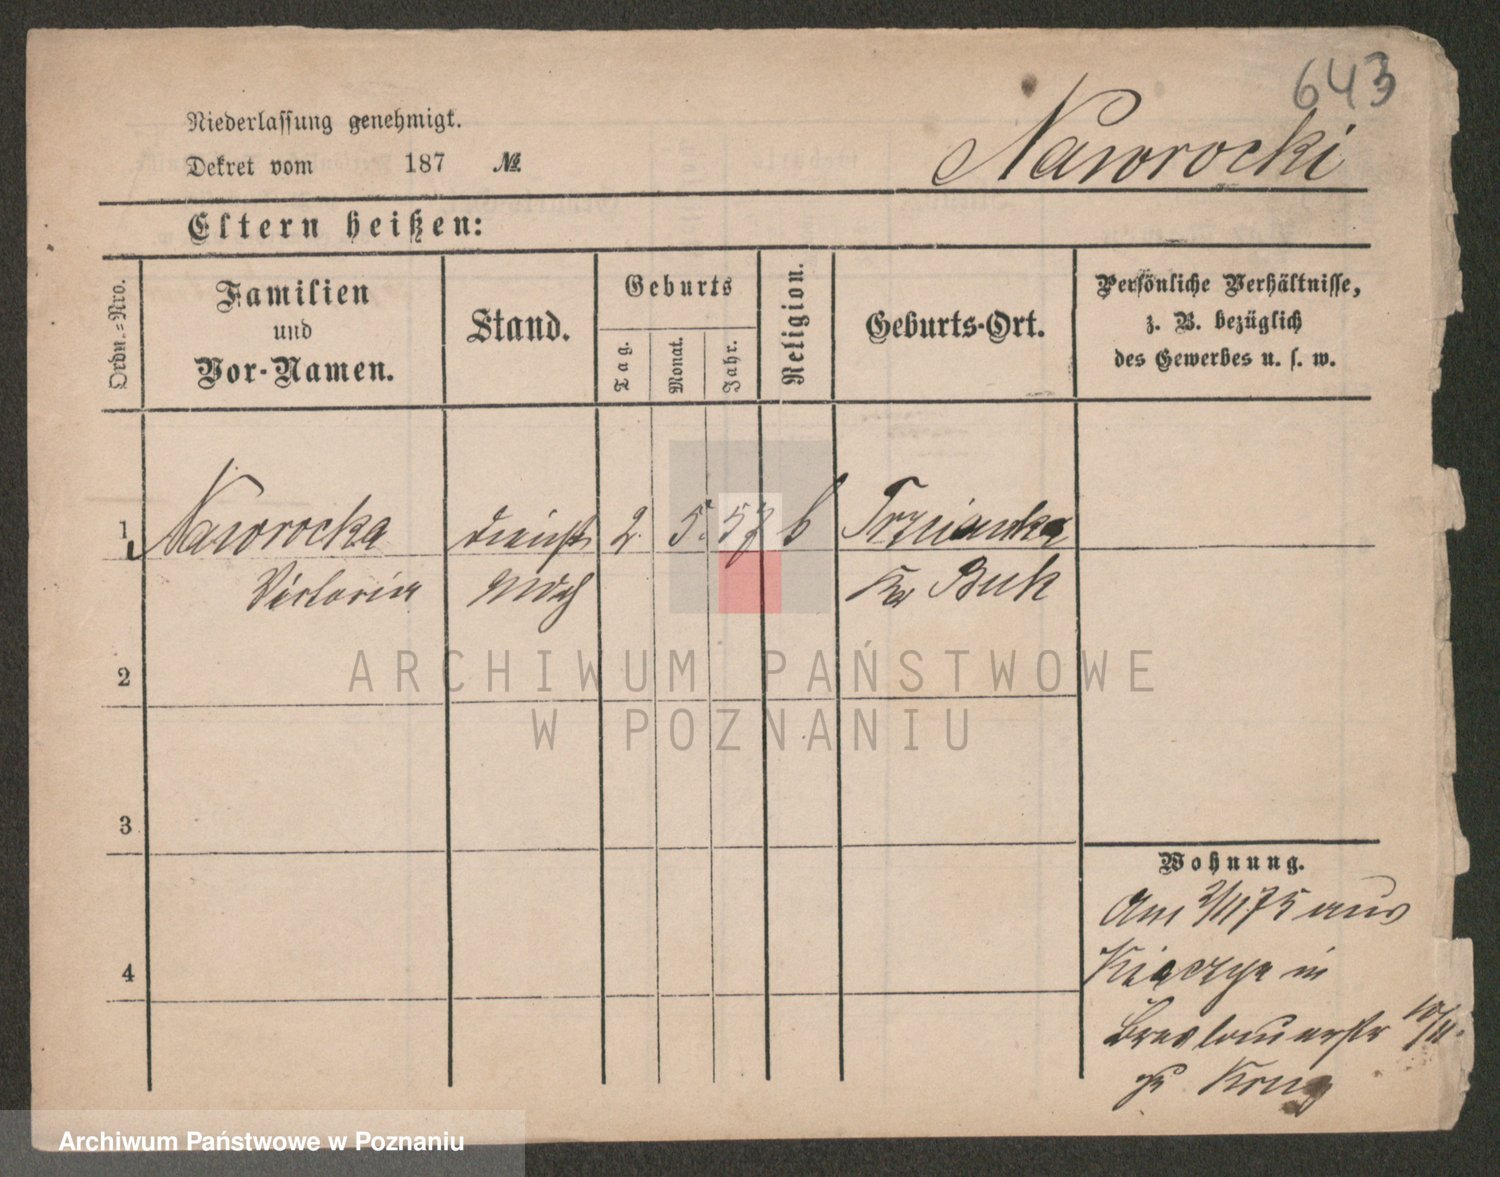 643
Niederlassung genehmigt.
Dekret vom 187 №.
Nawrocki
Eltern heißen:
Ordn.=Nro.
Familien
und
Vor-Namen.
Stand.
Geburts
Tag.
Monat.
Jahr.
Religion.
Geburts-Ort.
Persönliche Verhältnisse,
z. B. bezüglich
des Gewerbes u. s. w.
1 Nawrocka Dienst 2. 5. 57 Trzcianka
Victoria Buk
2
3
4
Wohnung.
Am 2/11 75 aus
in
Breslauerstr 10/11.
Krug
ARCHIWUM PAŃSTWOWE
W POZNANIU
Archiwum Państwowe w Poznaniu